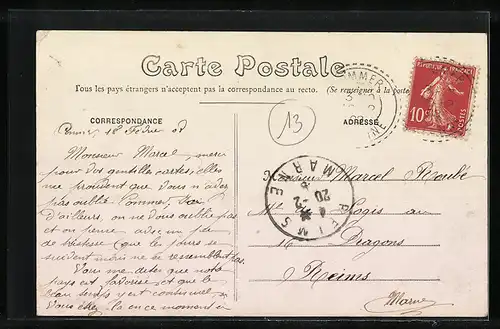 Carte Postale
Tous les pays étrangers n'acceptent pas la correspondance au recto. (Se renseigner à la poste
CORRESPONDANCE
ADRESSE
13
10
POSTES
18 08
Monsieur Marcel, merci
pour vos gentilles cartes, elles
me prouvent que vous n'avez
pas oublié
D'ailleurs, on ne vous oublie pas
et on pense avec un peu
de tristesse que les jours se
suivent mais ne se ressemblent pas.
Vous me dites que notre
pays est favorisé, et que le
beau temps y est continuel,
Vous en ce moment
Monsieur Marcel
Mal Logis au
Dragons
Reims
Marne
REIMS
20-2
MARNE